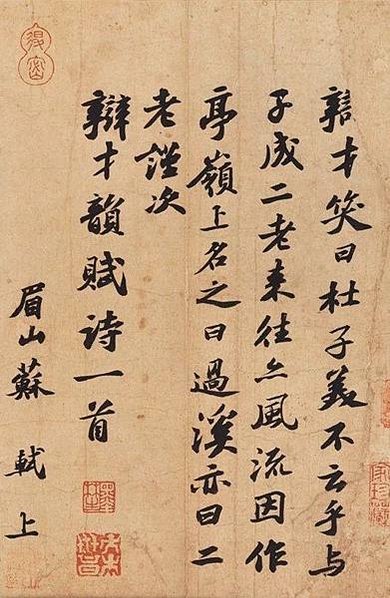 辯才笑曰杜子美不云乎與
子成二老來往亦風流因作
亭嶺上名之曰過溪亦曰二
老謹次
辯才韻賦詩一首
眉山蘇軾上